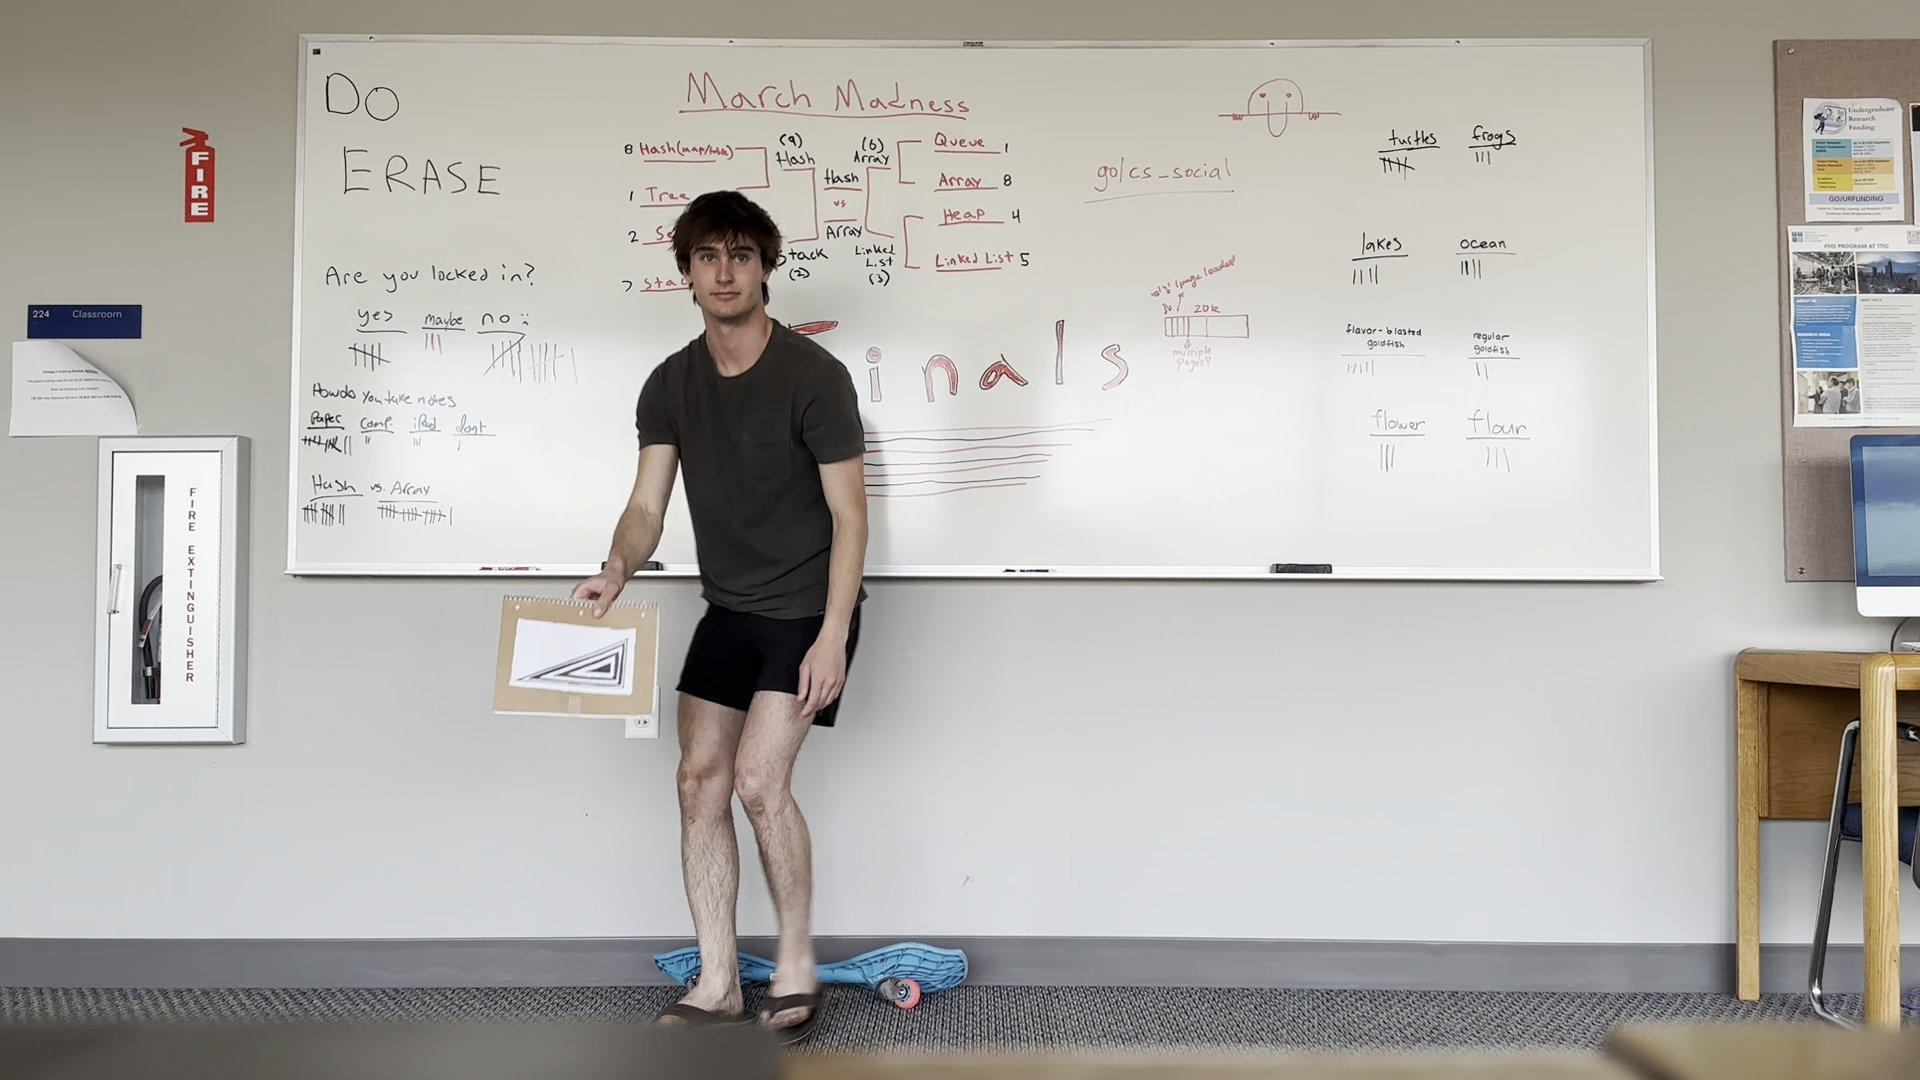 DO
ERASE
Are you locked in?
yes maybe no :
How do you take notes
Paper comp. iPad dont
Hash vs. Array
March Madness
8 Hash (map/table)
1 Tree
2 Se
7 Stac
(9)
Hash
Stack
(2)
Hash
vs
Array
(6)
Array
Linked
List
(3)
Queue 1
Array 8
Heap 4
Linked List 5
inals
go/cs_social
20k
multiple
pages?
turtles frogs
lakes ocean
flavor-blasted
goldfish
regular
goldfish
flower flour
FIRE
224 Classroom
FIRE EXTINGUISHER
Undergraduate
Research
Funding
GO/URFUNDING
PHD PROGRAM AT TTIC